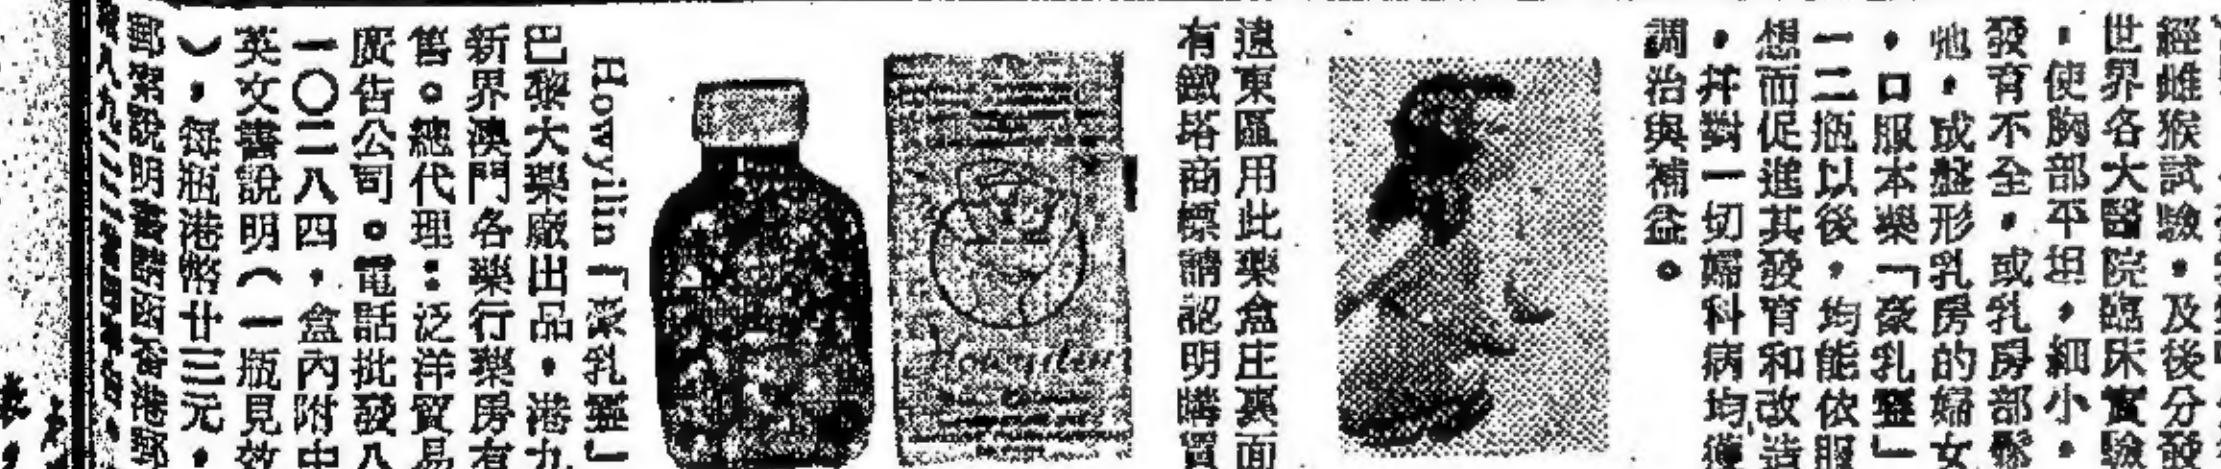 經雌猴試驗，及後分發
世界各大醫院臨床實驗
，使胸部平坦，細小，
發育不全，或乳房部鬆
弛，或盤形乳房的婦女
，口服本藥「豪乳靈」
一二瓶以後，均能依服
想而促進其發育和改造
，并對一切婦科病均獲
調治與補益。
遠東區用此藥盒庄裏面
有鐵塔商標請認明購買
Howyilin「豪乳靈」
巴黎大藥廠出品，港九
新界澳門各藥行藥房有
售。總代理：泛洋貿易
廣告公司。電話批發八
一〇二八四，盒內附中
英文書說明（一瓶見效
），每瓶港幣廿三元，
郵索說明